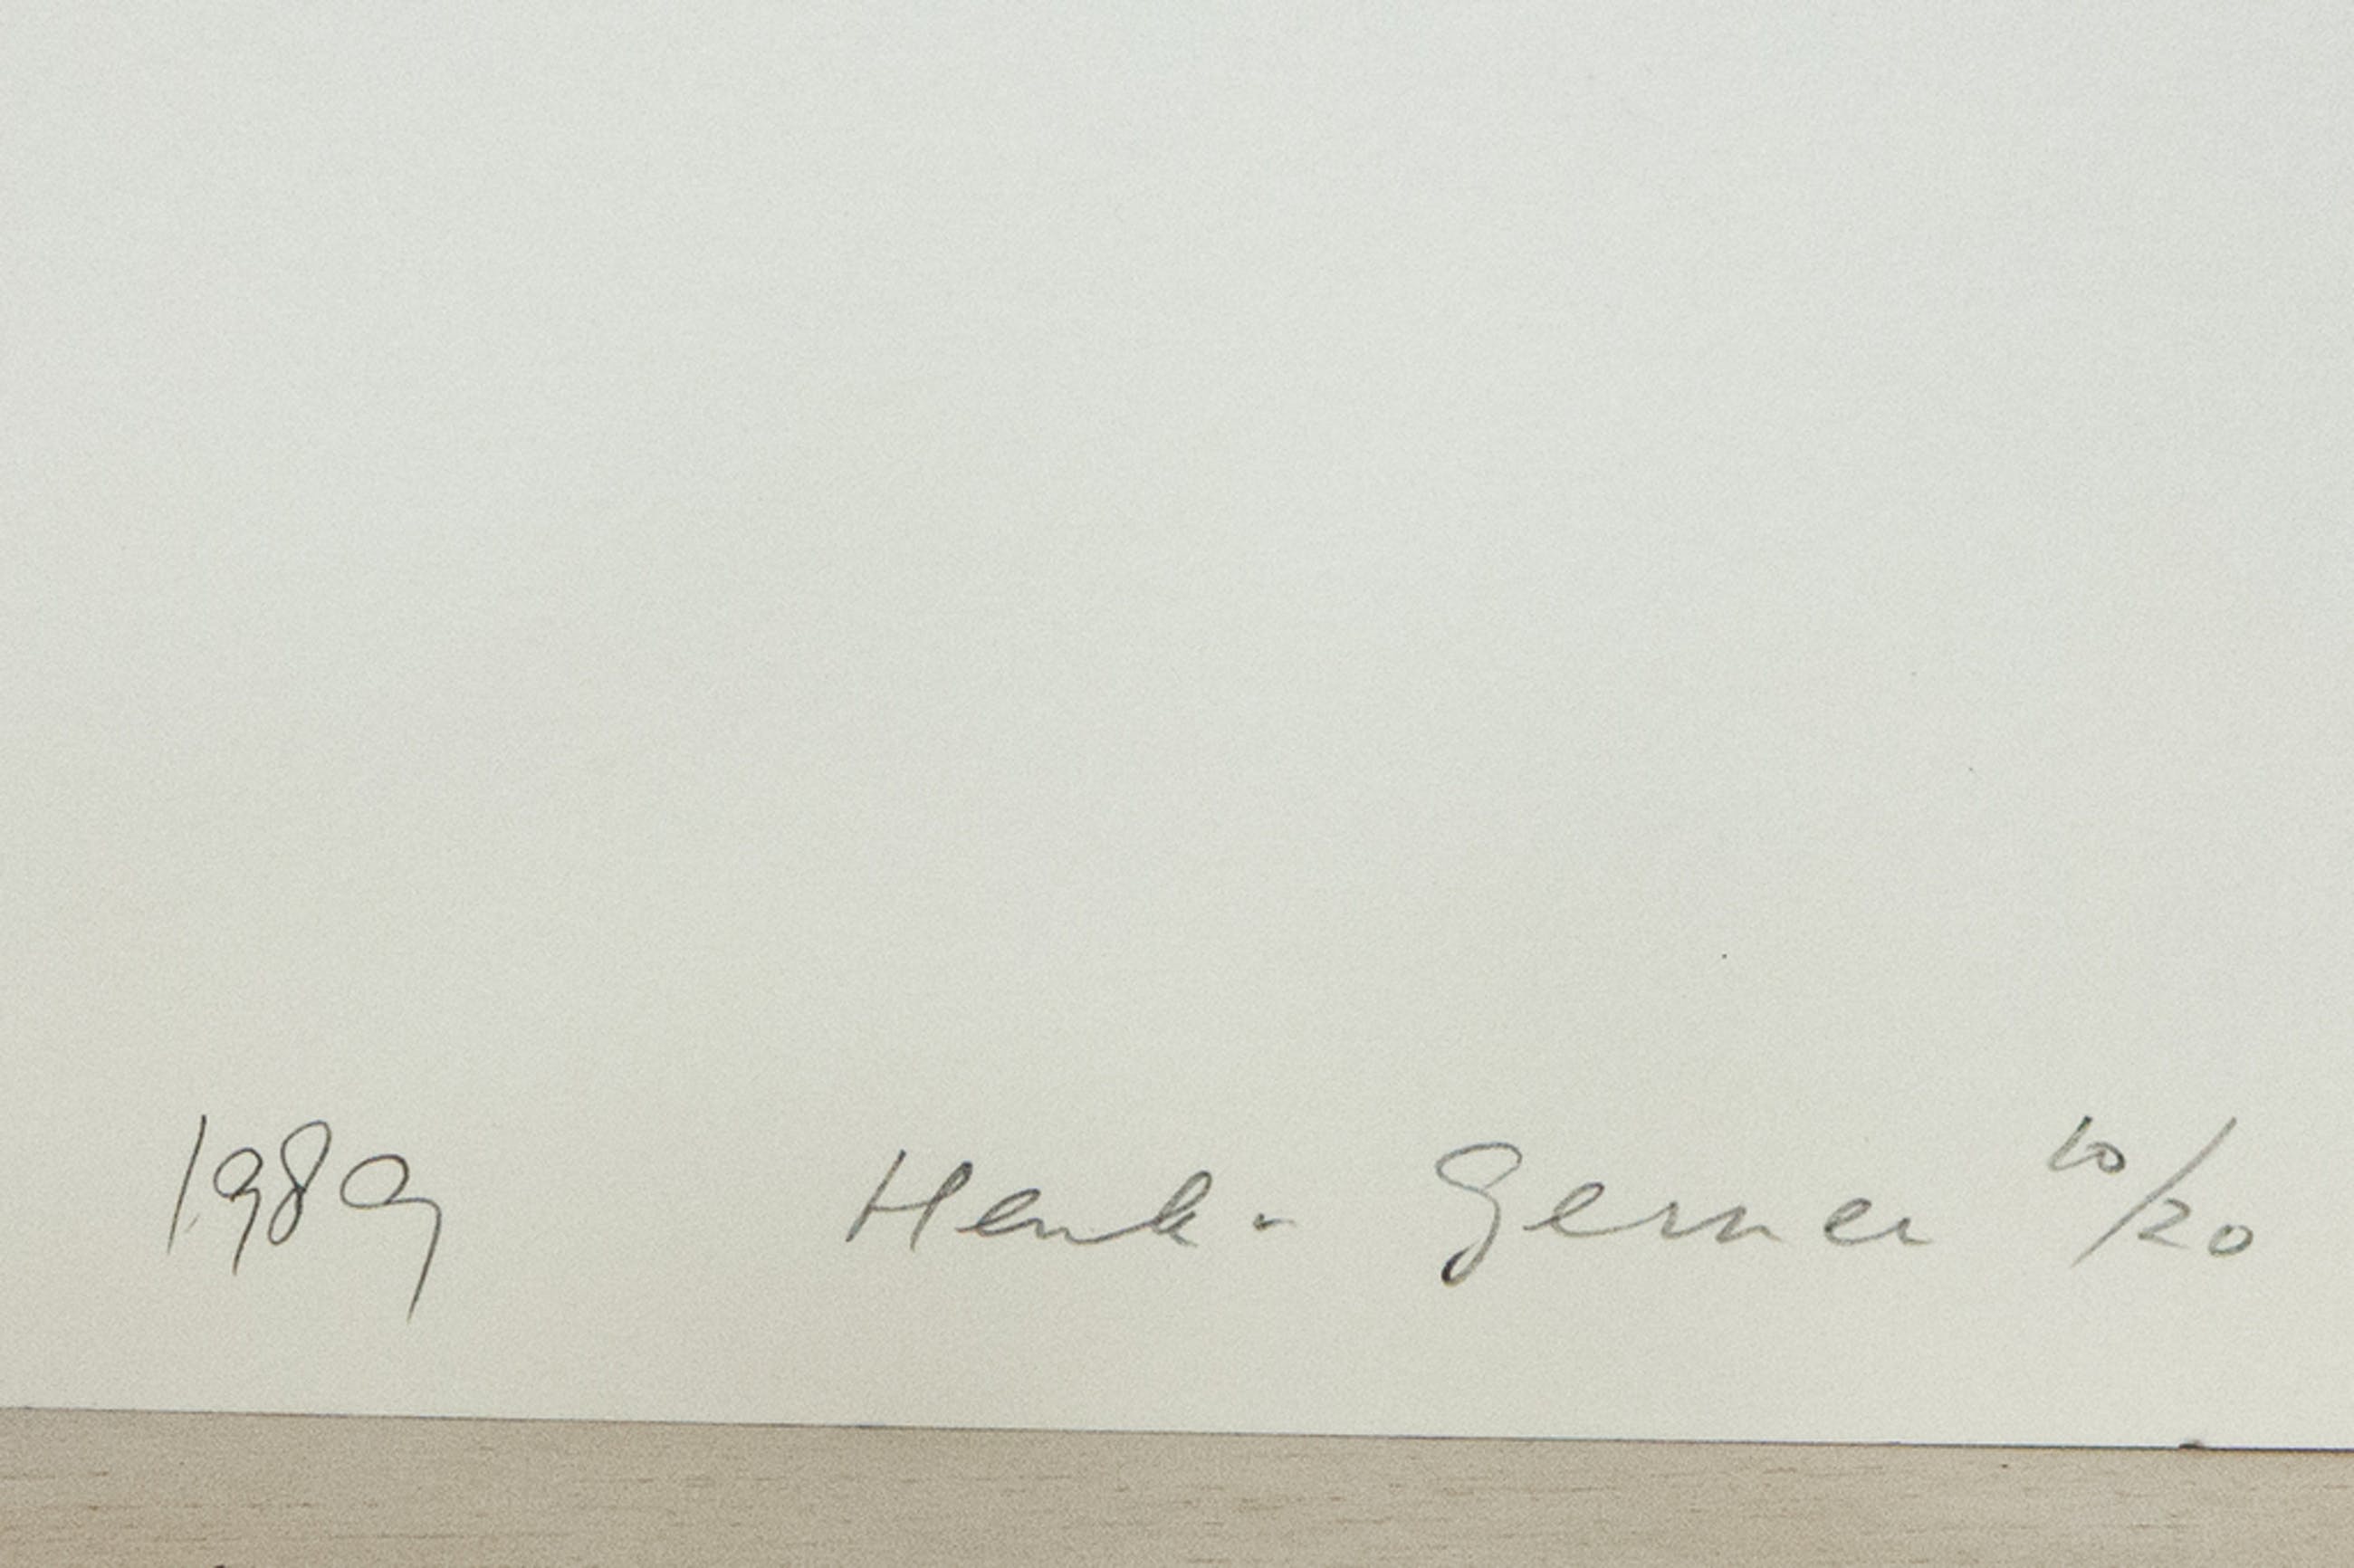 1989 Henk - Gerner 10/20